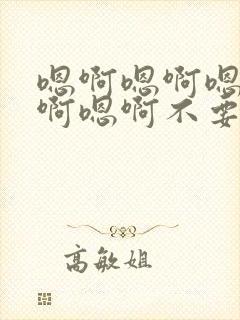 嗯啊嗯啊嗯
啊嗯啊不要
高敏姐